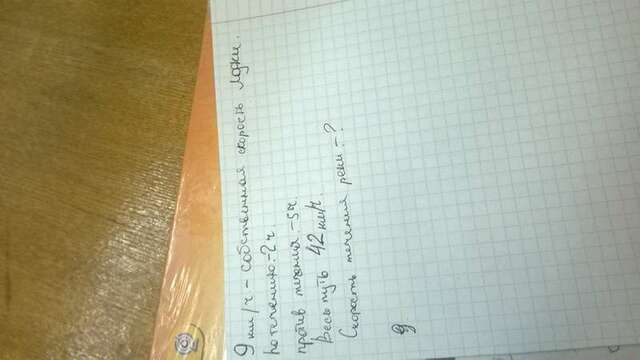 9 км/ч - собственная скорость лодки.
по течению - 2 ч
против течения - 5 ч.
Весь путь 42 км/ч.
Скорость течения реки - ?
9